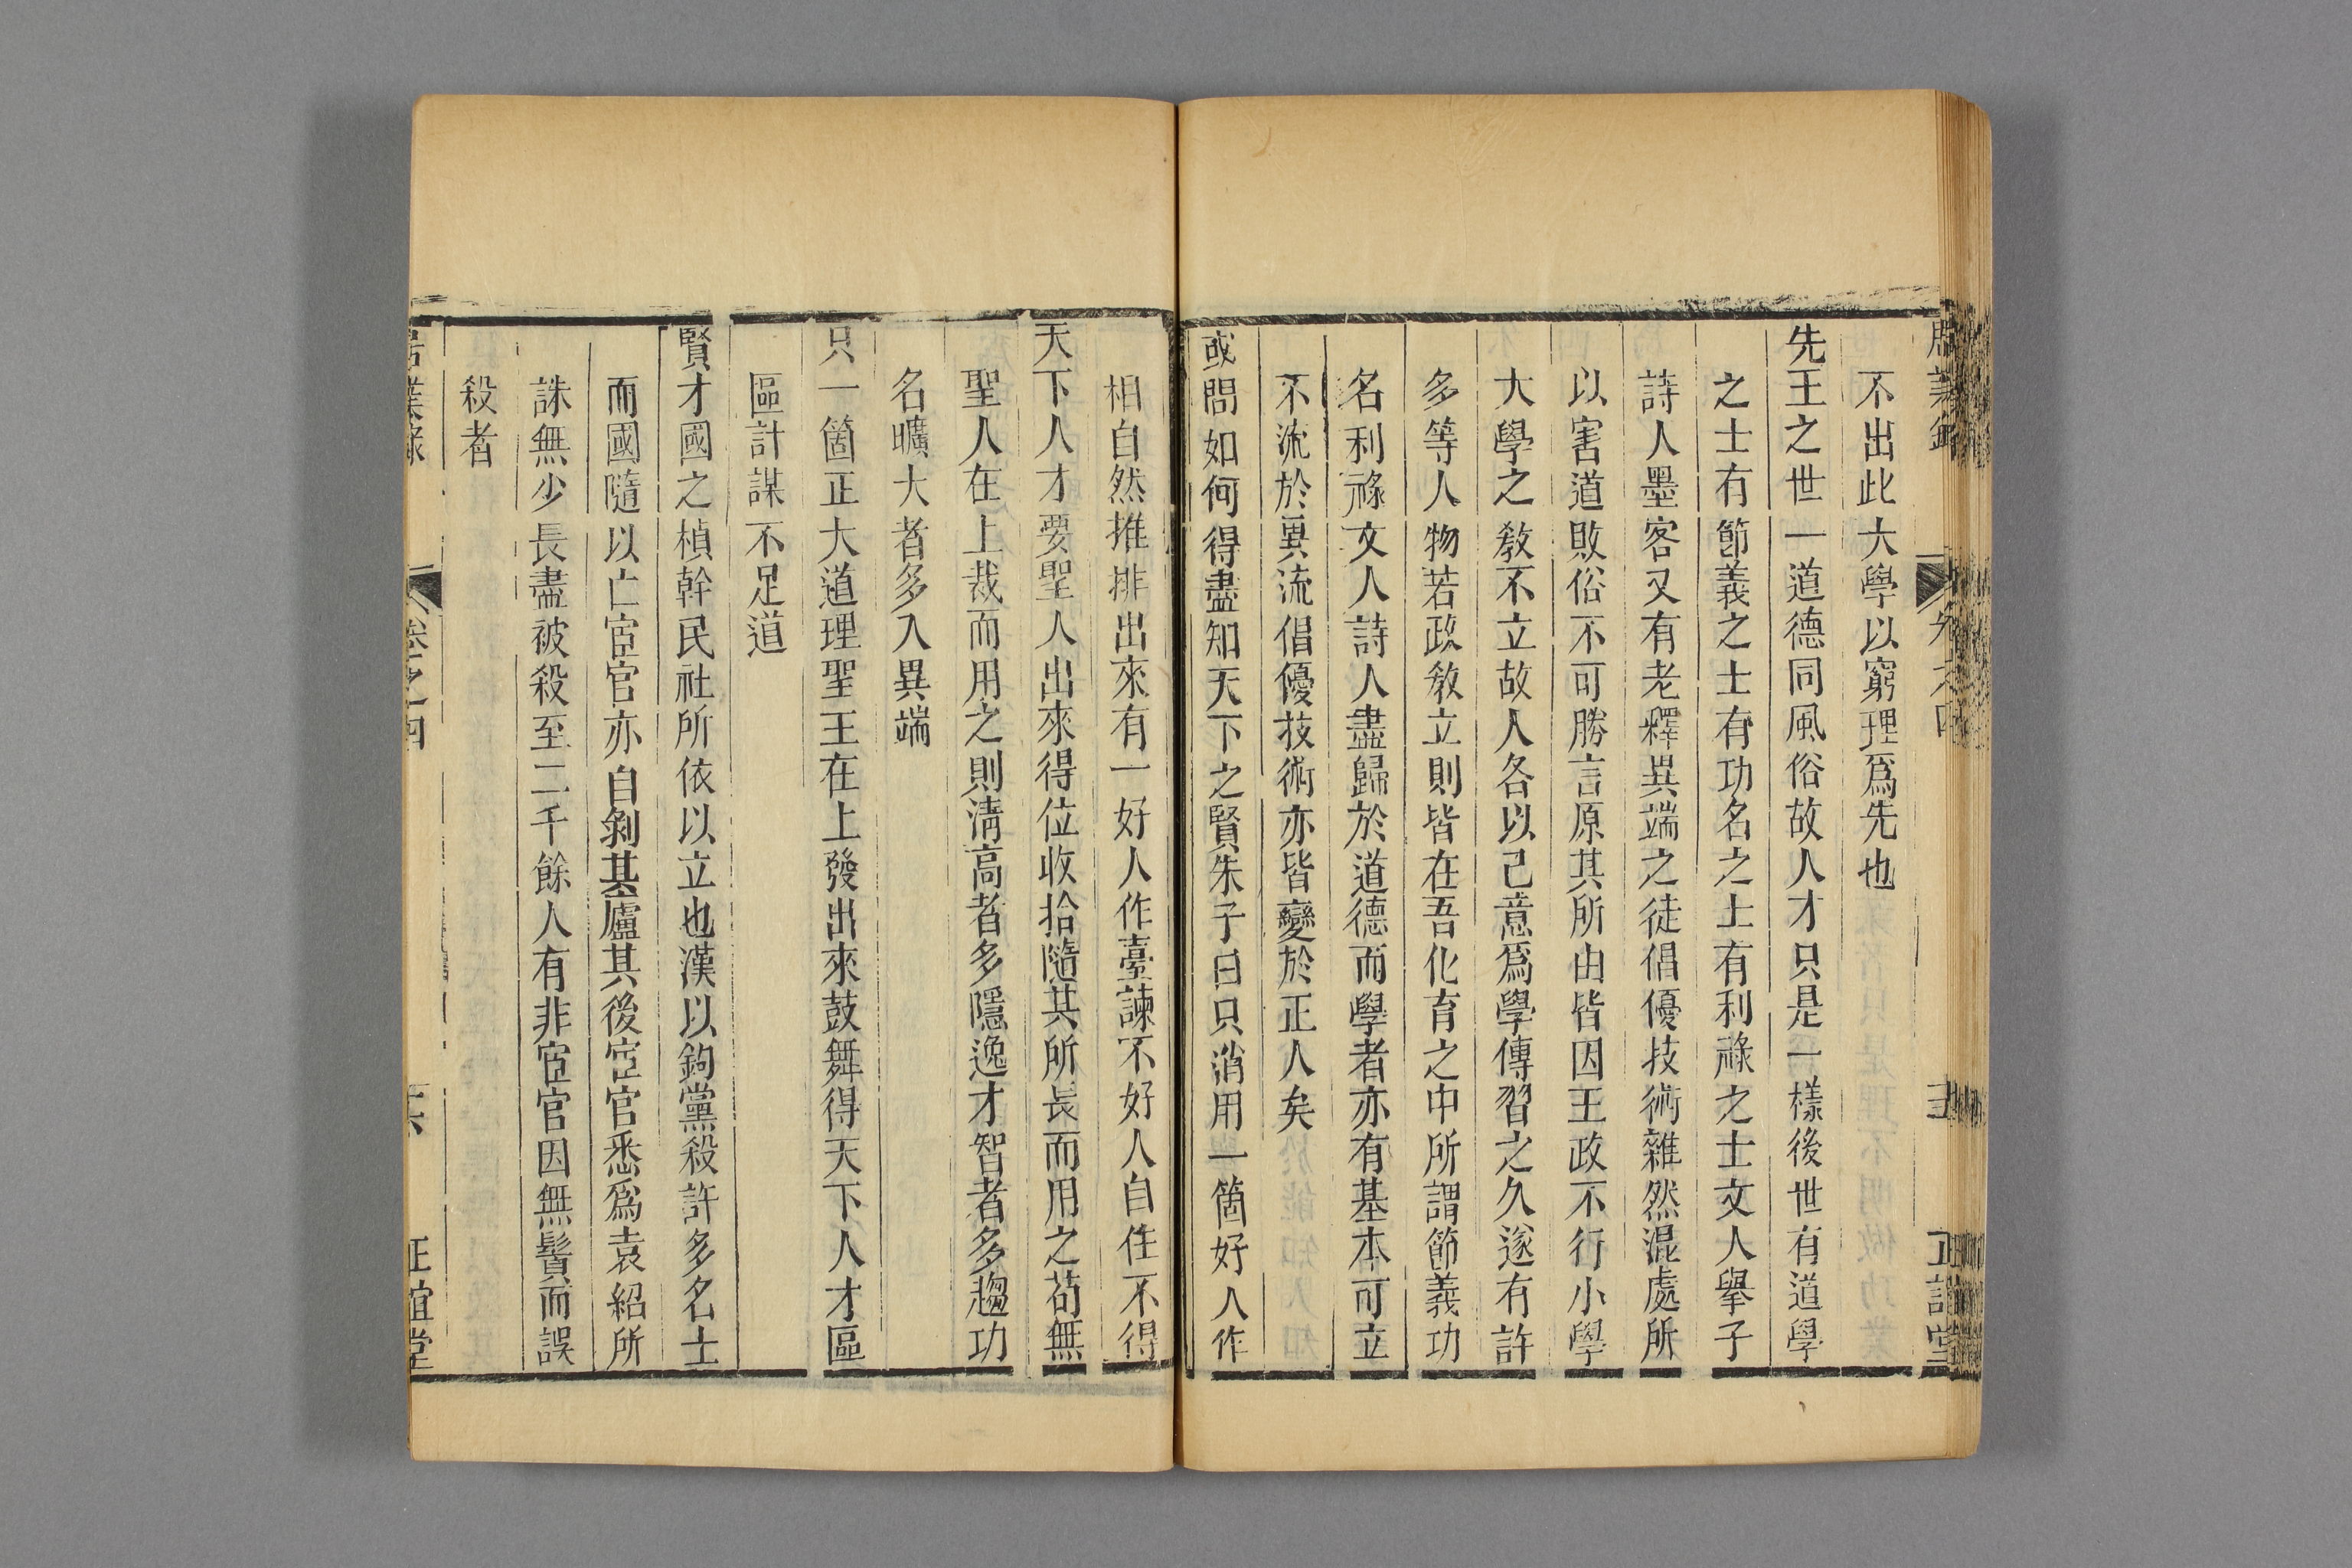 不出此大學以窮理爲先也
先王之世一道德同風俗故人才只是一樣後世有道學
之士有節義之士有功名之士有利祿之士文人舉子
詩人墨客又有老釋異端之徒倡優技術雜然混處所
以害道敗俗不可勝言原其所由皆因王政不行小學
大學之敎不立故人各以己意爲學傳習之久遂有許
多等人物若政敎立則皆在吾化育之中所謂節義功
名利祿文人詩人盡歸於道德而學者亦有基本可立
不流於異流倡優技術亦皆變於正人矣
或問如何得盡知天下之賢朱子曰只消用一箇好人作
相自然推排出來有一好人作臺諫不好人自住不得
天下人才要聖人出來得位收拾隨其所長而用之苟無
聖人在上裁而用之則淸高者多隱逸才智者多趨功
名曠大者多入異端
只一箇正大道理聖王在上發出來鼓舞得天下人才區
區計謀不足道
賢才國之楨幹民社所依以立也漢以鉤黨殺許多名士
而國隨以亡宦官亦自剝其廬其後宦官悉爲袁紹所
誅無少長盡被殺至二千餘人有非宦官因無鬚而誤
殺者
居業錄 卷之四 正誼堂